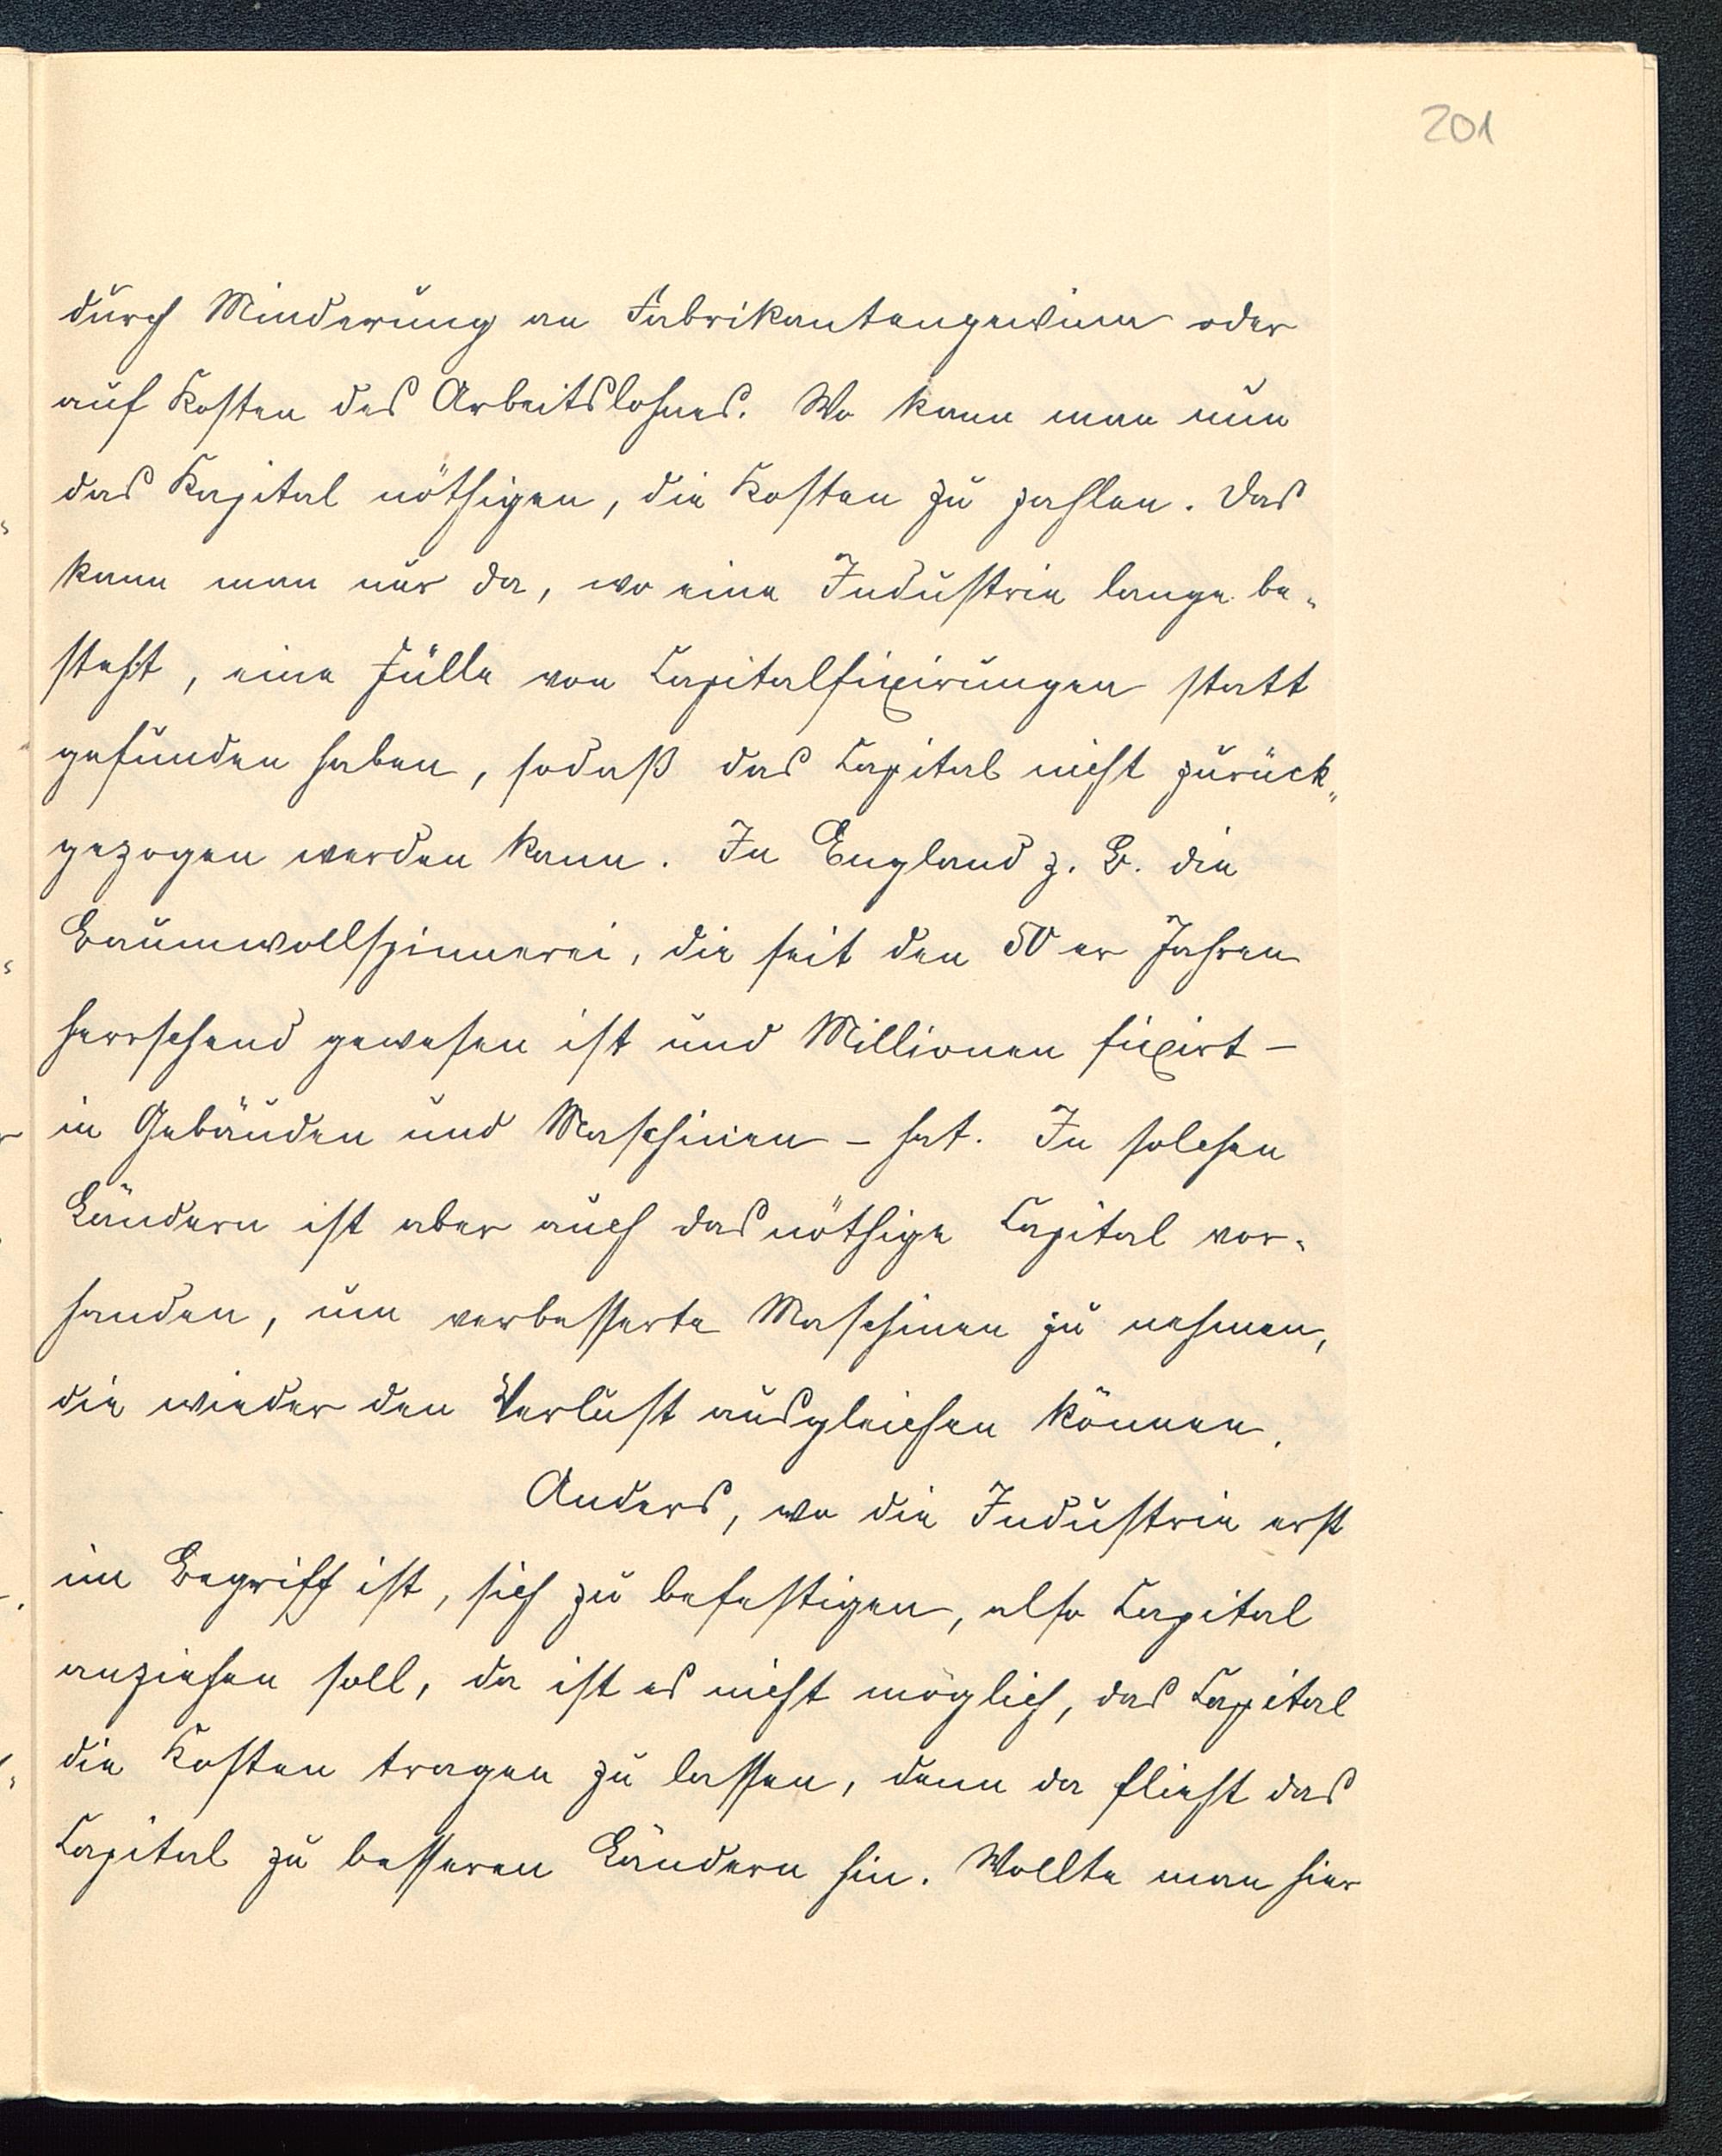 201
durch Minderung an Fabrikantengewinn oder
auf Kosten des Arbeitslohnes. Wo kann man nun
das Kapital nöthigen, die Kosten zu zahlen. Das
kann man nur da, wo eine Industrie lange be-
steht, eine Fülle von Capitalfixirungen statt
gefunden haben, sodaß das Capital nicht zurück-
gezogen werden kann. In England z. B. die
Baumwollspinnerei, die seit den 50 er Jahren
herrschend gewesen ist und Millionen fixirt –
in Gebäuden und Maschinen – hat. In solchen
Ländern ist aber auch das nöthige Capital vor-
handen, um verbesserte Maschinen zu nehmen,
die wieder den Verlust ausgleichen können.
Anders, wo die Industrie erst
im Begriff ist, sich zu befestigen, also Capital
anziehen soll, da ist es nicht möglich, das Capital
die Kosten tragen zu lassen, denn da flieht das
Capital zu besseren Ländern hin. Wollte man hier